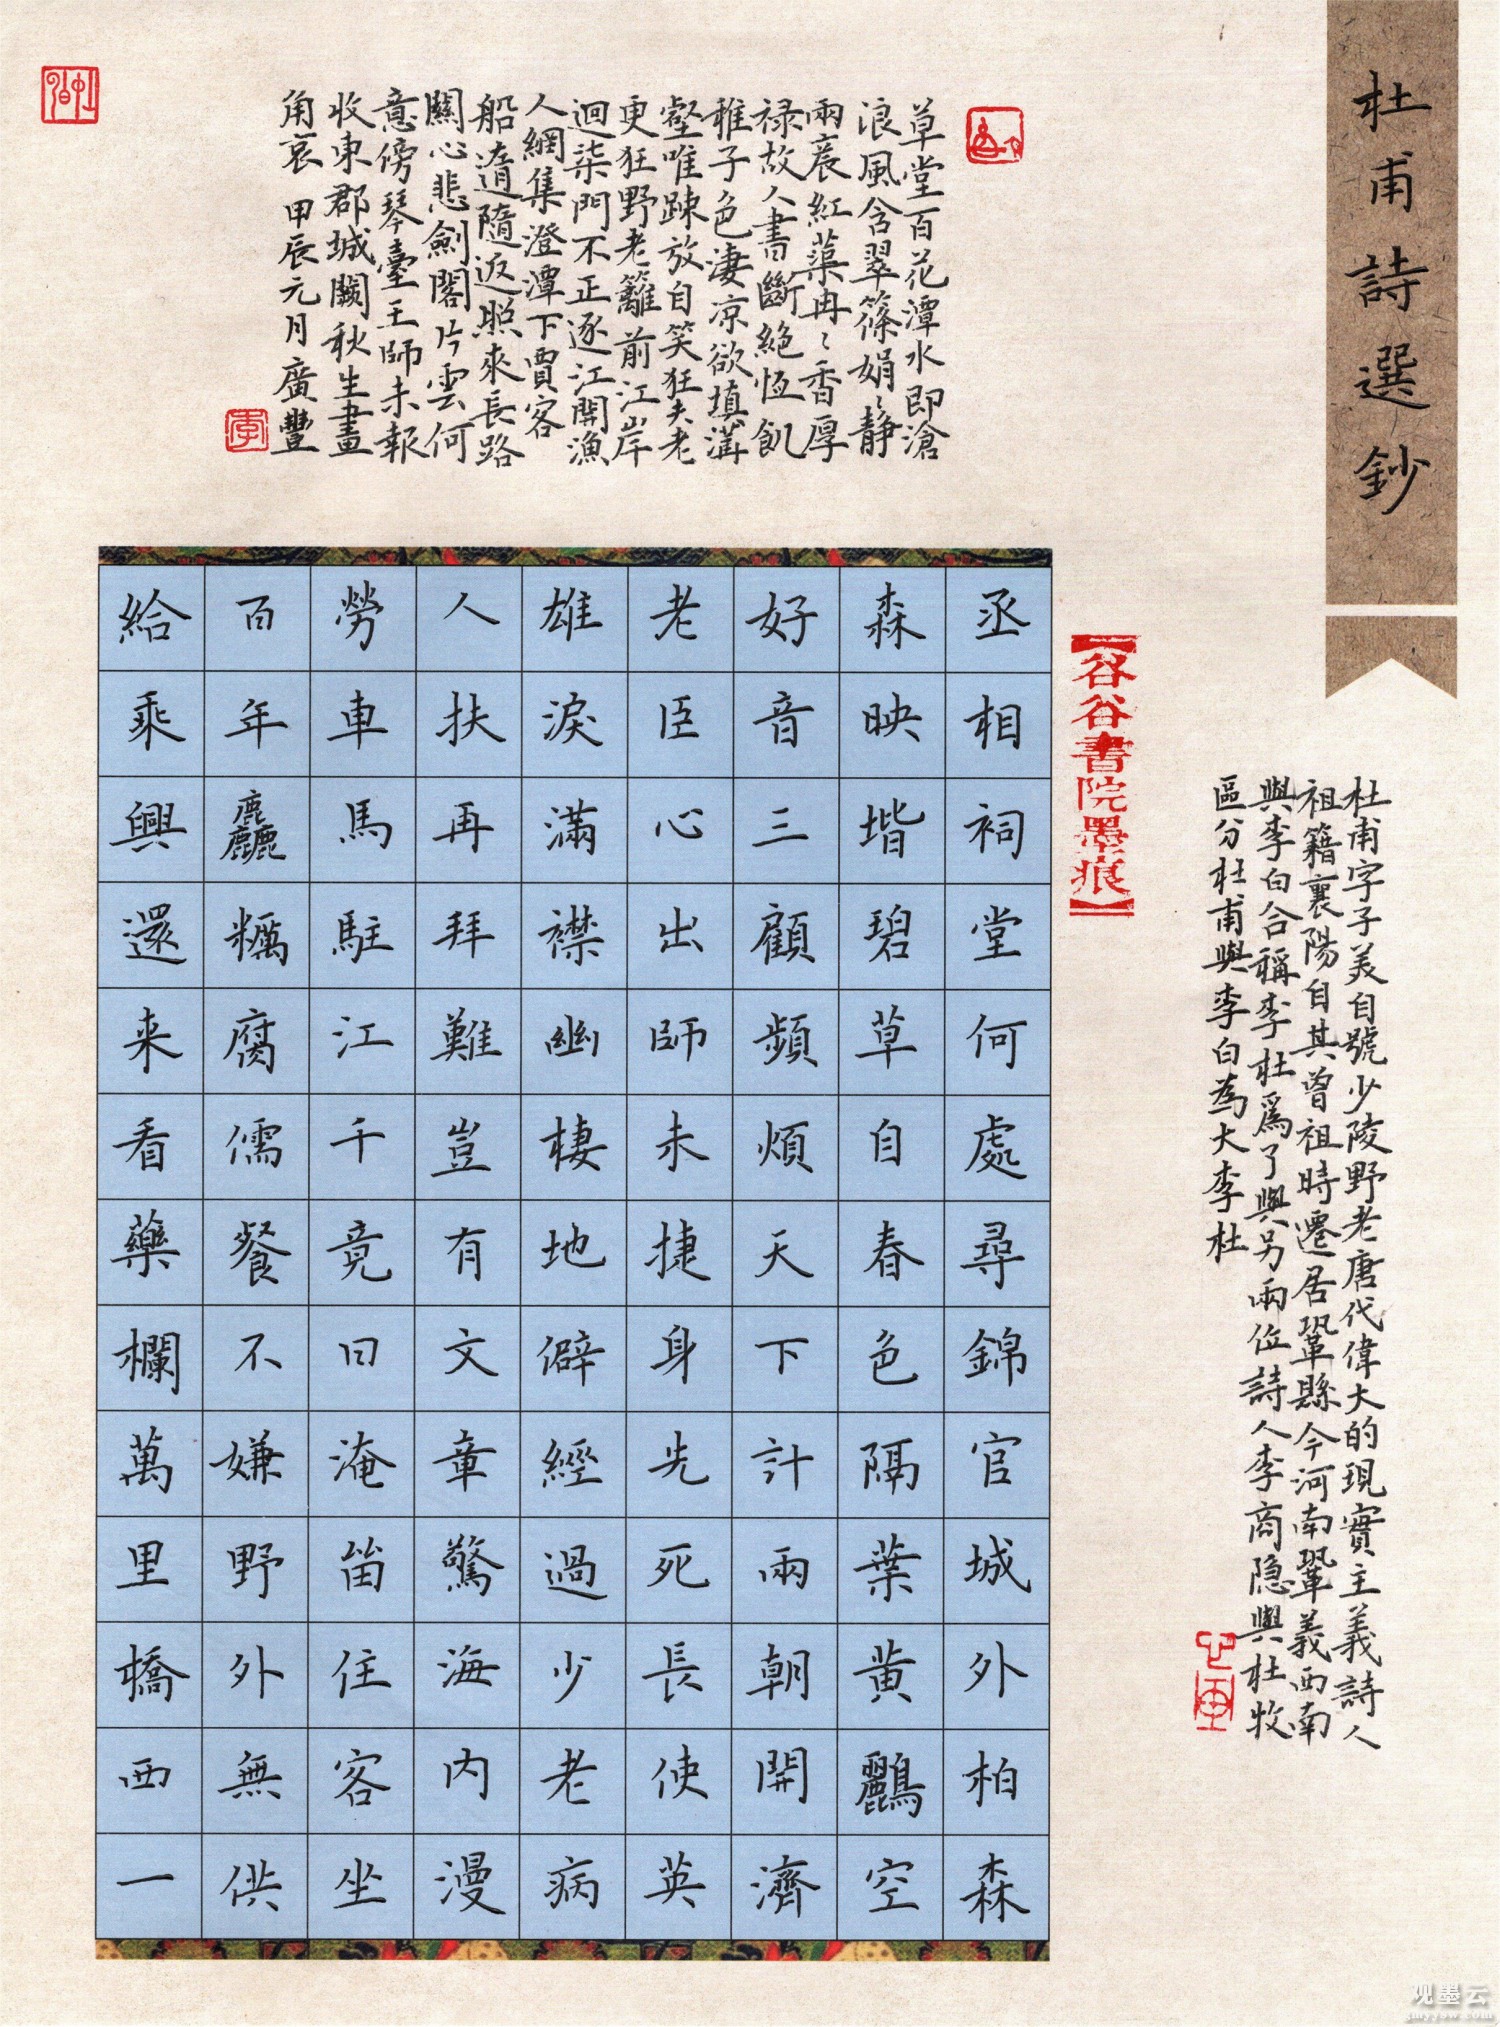 杜甫詩選鈔
杜甫字子美自號少陵野老唐代偉大的現實主義詩人
祖籍襄陽自其曾祖時遷居鞏縣今河南鞏義西南
與李白合稱李杜爲了與另兩位詩人李商隐與杜牧
區分杜甫與李白為大李杜
草堂百花潭水即滄
浪風含翠篠娟〻静
兩裛紅蕖冉〻香厚
禄故人書斷絶恆飢
稚子色凄凉欲填溝
壑唯踈放自笑狂夫老
更狂野老籬前江岸
迴柒門不正逐江開漁
人網集澄潭下賈客
船遺隨返照來長路
關心悲劍閣片雲何
意傍琴臺王師未報
收東郡城闕秋生畫
角哀 甲辰元月廣豐
【谷谷書院墨痕】
丞相祠堂何處尋錦官城外柏森
森映堦碧草自春色隔葉黄鸝空
好音三顧頻煩天下計兩朝開濟
老臣心出師未捷身先死長使英
雄淚滿襟幽棲地僻經過少老病
人扶再拜難豈有文章驚海内漫
勞車馬駐江干竟日淹畱住客坐
百年麤糲腐儒餐不嫌野外無供
給乘興還来看藥欄萬里橋西一
观墨云